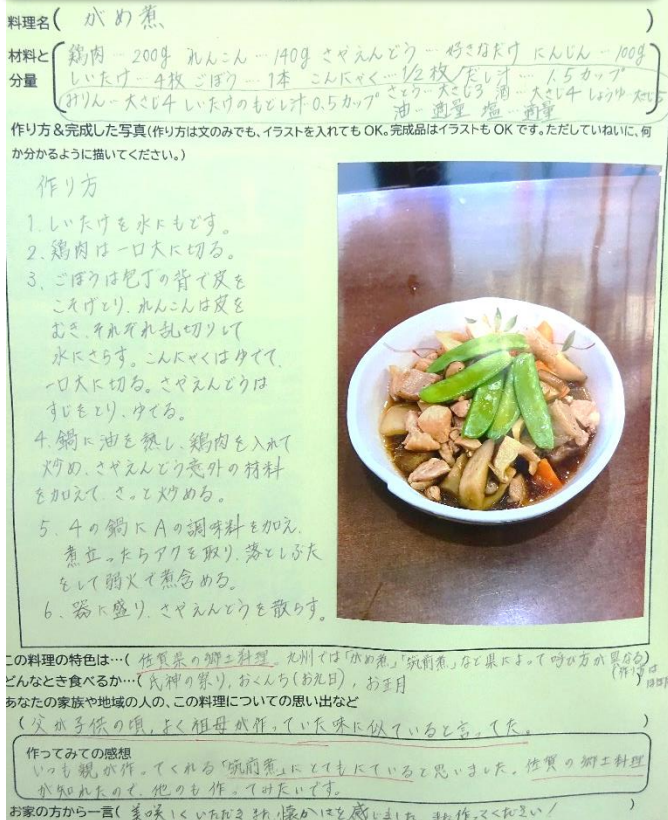 料理名( がめ煮 )
材料と分量
鶏肉…200g れんこん…140g さやえんどう…好きなだけ にんじん…100g
しいたけ…4枚 ごぼう…1本 こんにゃく…1/2枚 だし汁…1.5カップ
さとう…大さじ3 酒…大さじ4 しょうゆ 大さじ5
みりん…大さじ4 しいたけのもどし汁0.5カップ
油…適量 塩…適量
作り方&完成した写真(作り方は文のみでも、イラストを入れてもOK。完成品はイラストもOKです。ただしていねいに、何
か分かるように描いてください。)
作り方
1. しいたけを水にもどす。
2. 鶏肉は一口大に切る。
3. ごぼうは包丁の背で皮を
こそげとり、れんこんは皮を
むき、それぞれ乱切りして
水にさらす。こんにゃくはゆでて、
一口大に切る。さやえんどうは
すじをとり、ゆでる。
4. 鍋に油を熱し、鶏肉を入れて
炒め、さやえんどう意外の材料
を加えて、さっと炒める。
5. 4の鍋にAの調味料を加え、
煮立ったらアクを取り、落としぶた
をして弱火で煮含める。
6. 器に盛り、さやえんどうを散らす。
この料理の特色は…( 佐賀県の郷土料理。九州では「がめ煮」「筑前煮」など県によって呼び方が異なる)
どんなとき食べるか…( 氏神の祭り、おくんち(お九日)、お正月 )
あなたの家族や地域の人の、この料理についての思い出など
( 父が子供の頃、よく祖母が作っていた味に似ていると言ってた。 )
作ってみての感想
いつも親が作ってくれる「筑前煮」にとてもにていると思いました。佐賀の郷土料理
が知れたので、他のも作ってみたいです。
お家の方から一言( 美味しくいただきました。懐かしさを感じました。また作ってください!